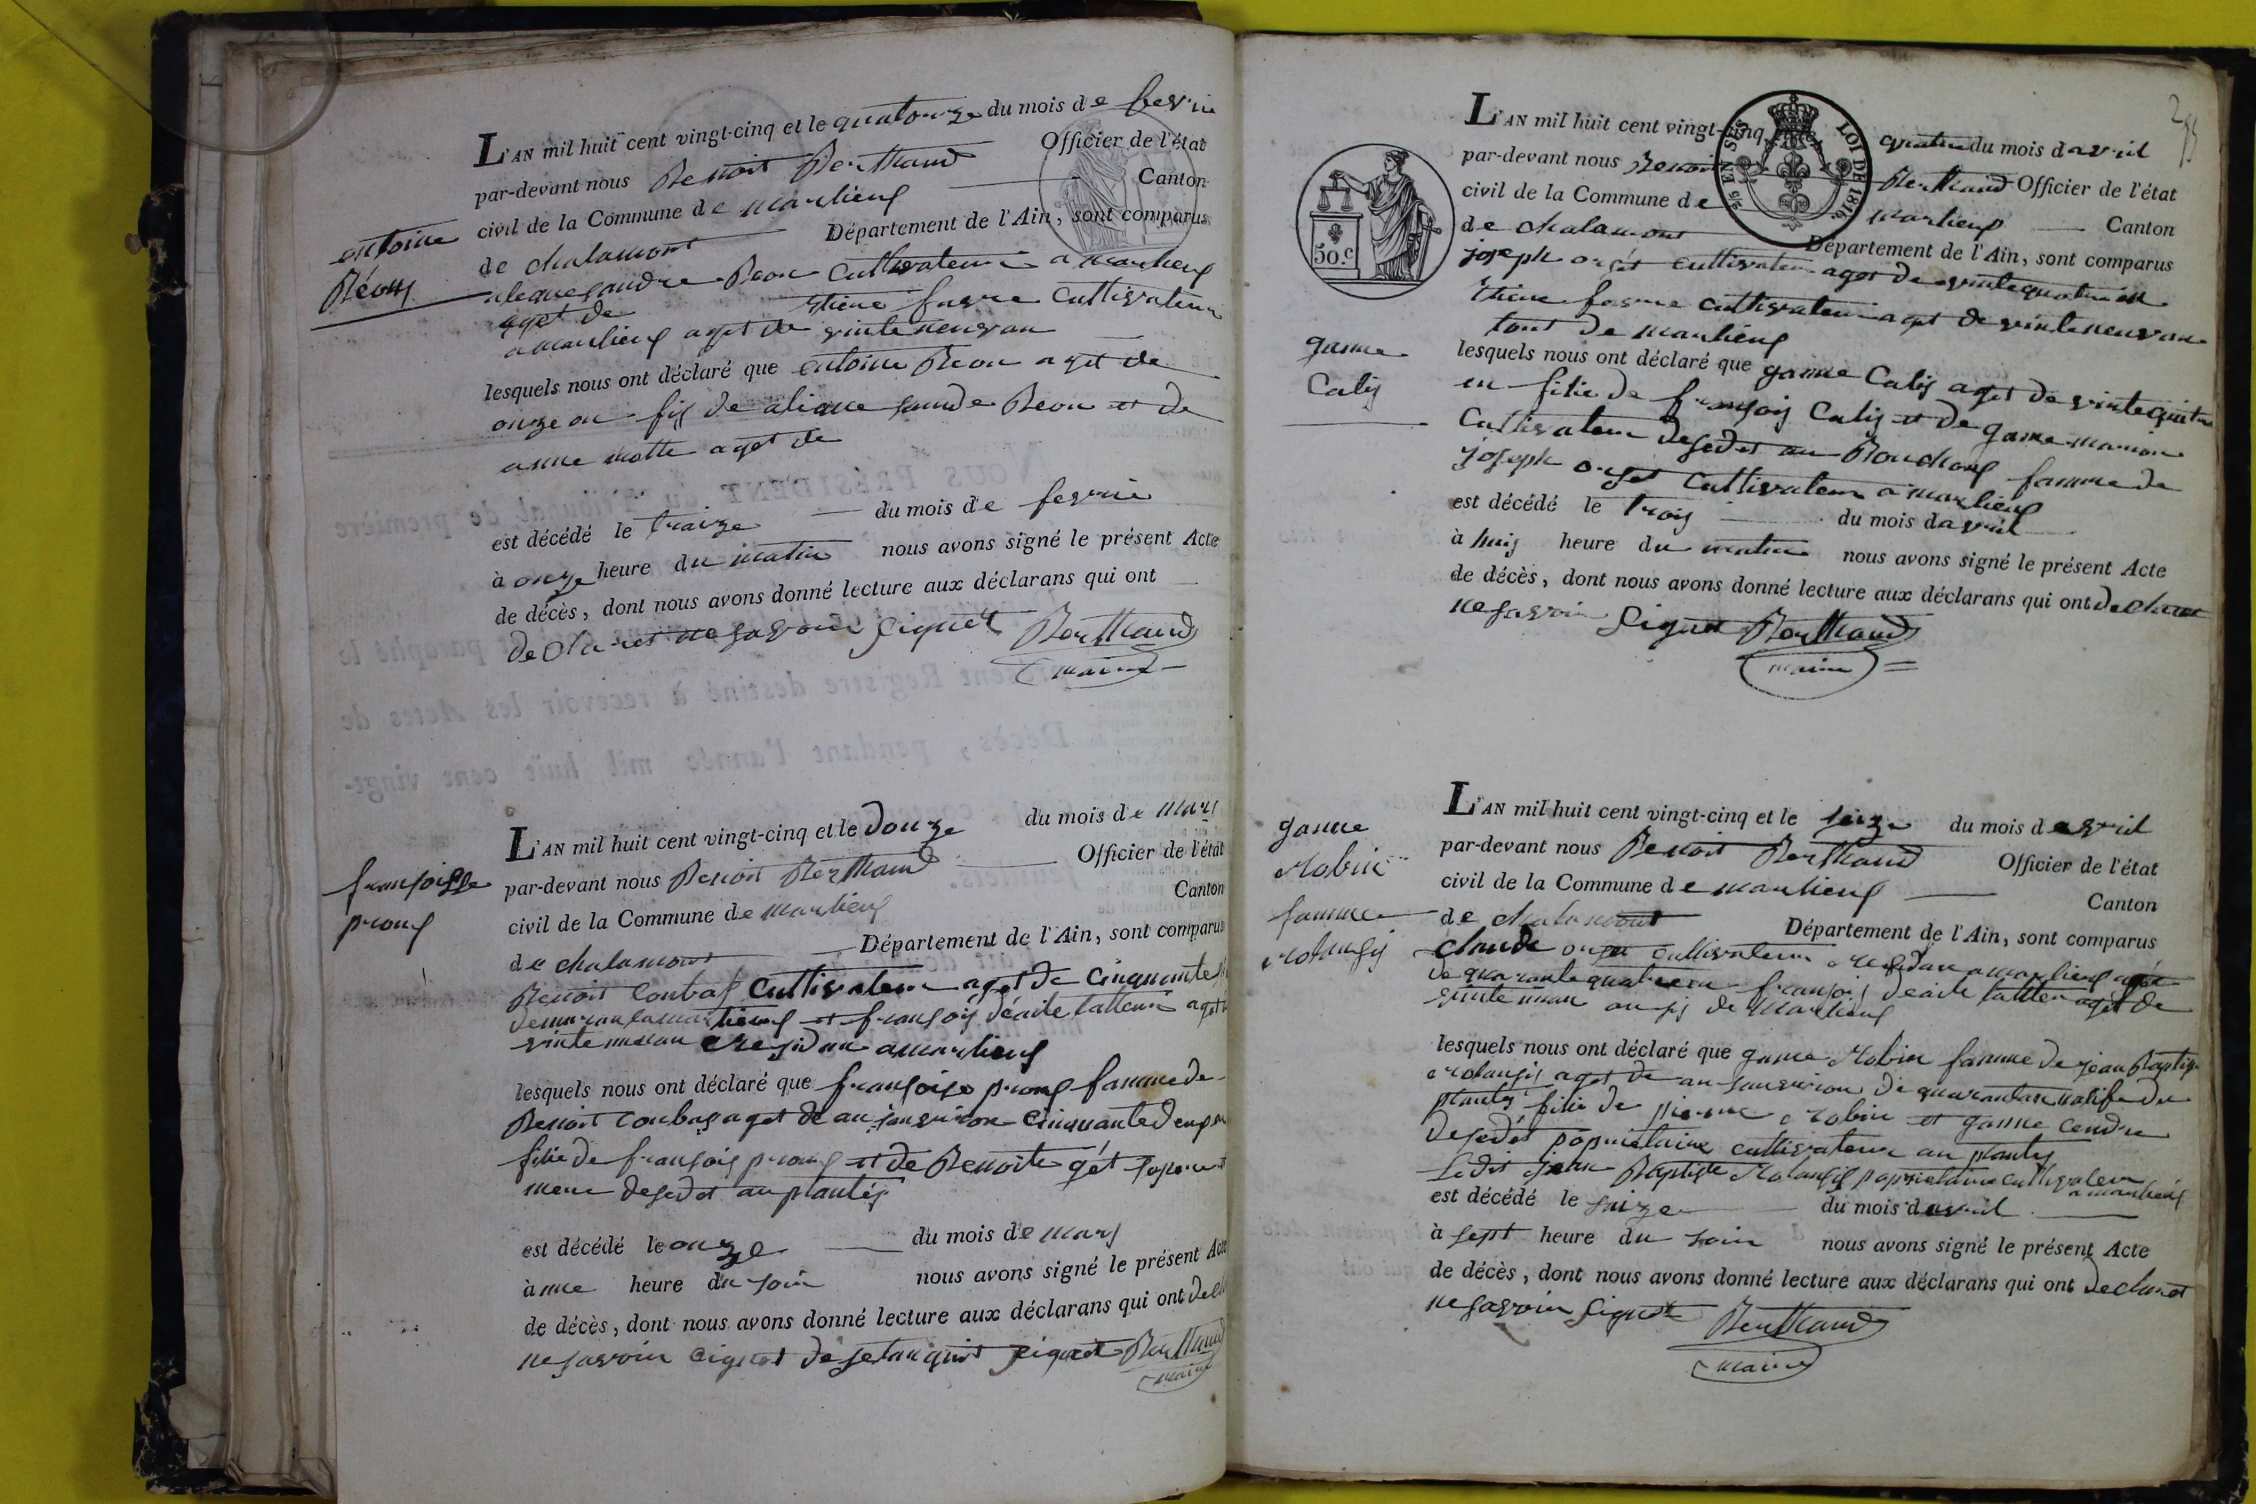 entoine
Réous
L'AN mil huit cent vingt-cinq et le quatorze du mois de fevrie
par-devant nous Benoit Berthaud Officier de l'état
civil de la Commune de marlieus Canton
de chalamont Département de l'Ain, sont comparus
alequesandre Reon cultivateur a marlieus
aget de etiene favre cultivateur
a marlieus aget de vinte neuvan
lesquels nous ont déclaré que entoine Reon aget de
onze an fis de alique sandre Reon et de
anne motte aget de
est décédé le traize du mois de fevrie
à onze heure du matin nous avons signé le présent Acte
de décès, dont nous avons donné lecture aux déclarans qui ont
de claret ne savoir signét Berthaud
maire
fransoisse
prous
L'AN mil huit cent vingt-cinq et le douze du mois de mars
par-devant nous Benoit Berthaud Officier de l'état
civil de la Commune de marlieus Canton
de chalamont Département de l'Ain, sont comparus
Benoit Conbas cultivateur aget de cinquante
demuran a marlieus et fransois déaite tatteur aget
vinte an residan a marlieus
lesquels nous ont déclaré que fransoise prous famme de
Benoit conbas aget de an sanviron cinquante deup an
filie de fransois prous et de Benoite gét
mere desedet au plantés
est décédé le onze du mois de mars
à une heure du soir nous avons signé le présent Acte
de décès, dont nous avons donné lecture aux déclarans qui ont decla
ne savoir signet de se Berthaud
maire
50.c
EN SUS
LOI DE 1816
295
ganne
Calis
L'AN mil huit cent vingt-cinq et le quatre du mois davril
par-devant nous Benoit Berthaud Officier de l'état
civil de la Commune de marlieus Canton
de chalamont Département de l'Ain, sont comparus
joseph orset cultivateur aget de vintequatre an
étiene favre cultivateur aget de vinteneuvan
tout de marlieus
lesquels nous ont déclaré que ganne Calis aget de vintequatre
en filie de fransois Calis et de ganne marion
Cultivateur desedet au Bouchous famme de
joseph orset cultivateur a marlieus
est décédé le trois du mois davril
à huis heure du matin nous avons signé le présent Acte
de décès, dont nous avons donné lecture aux déclarans qui ont declaret
ne savoir signet Berthaud
maire
ganne
Robin
famme
Rolangis
L'AN mil huit cent vingt-cinq et le seize du mois davril
par-devant nous Benoit Berthaud Officier de l'état
civil de la Commune de marlieus Canton
de chalamont Département de l'Ain, sont comparus
claude cultivateur residan a marlieus aget
de quarante quatre an fransois deaite tatteur aget de
vinte an de marlieus
lesquels nous ont déclaré que ganne Robin famme de jean Baptiste
Rolangis aget de an sanviron de quarantan natife du
plantés filie de pierre Robin et ganne Cendre
desedét popriétaire cultivateur au plantes
ledit jean Baptiste Rolangis popriétaire cultivateur
a marlieus
est décédé le saize du mois davril
à sept heure du soir nous avons signé le présent Acte
de décès, dont nous avons donné lecture aux déclarans qui ont declaret
ne savoir signét Berthaud
maire